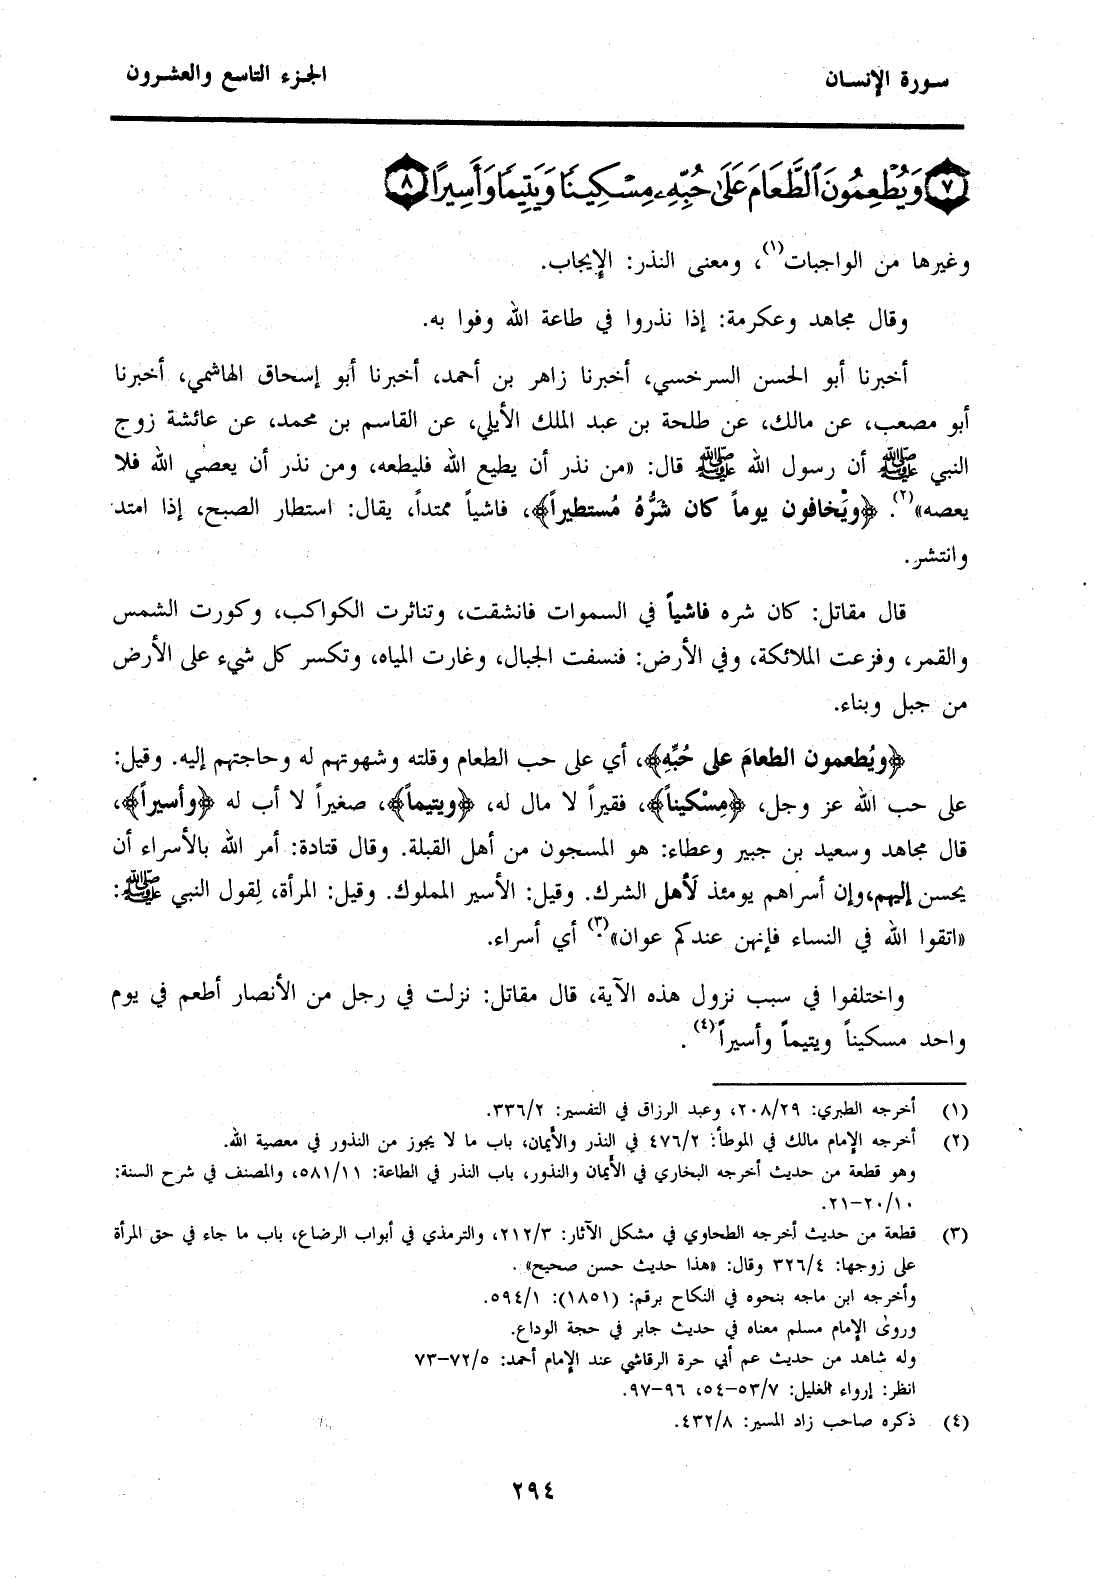 سورة الإنسان
الجزء التاسع والعشرون
٧ وَيُطْعِمُونَ ٱلطَّعَامَ عَلَىٰ حُبِّهِۦ مِسْكِينًا وَيَتِيمًا وَأَسِيرًا ٨
وغيرها من الواجبات(١)، ومعنى النذر: الإيجاب.
وقال مجاهد وعكرمة: إذا نذروا في طاعة الله وفوا به.
أخبرنا أبو الحسن السرخسي، أخبرنا زاهر بن أحمد، أخبرنا أبو إسحاق الهاشمي، أخبرنا
أبو مصعب، عن مالك، عن طلحة بن عبد الملك الأيلي، عن القاسم بن محمد، عن عائشة زوج
النبي ﷺ أن رسول الله ﷺ قال: «من نذر أن يطيع الله فليطعه، ومن نذر أن يعصي الله فلا
يعصه»(٢). ﴿ويَخافون يوماً كان شَرُّهُ مُستطيراً﴾، فاشياً ممتداً، يقال: استطار الصبح، إذا امتد
وانتشر.
قال مقاتل: كان شره فاشياً في السموات فانشقت، وتناثرت الكواكب، وكورت الشمس
والقمر، وفزعت الملائكة، وفي الأرض: فنسفت الجبال، وغارت المياه، وتكسر كل شيء على الأرض
من جبل وبناء.
﴿ويُطعمون الطعامَ على حُبِّهِ﴾، أي على حب الطعام وقلته وشهوتهم له وحاجتهم إليه. وقيل:
على حب الله عز وجل، ﴿مِسْكيناً﴾، فقيراً لا مال له، ﴿ويتيماً﴾، صغيراً لا أب له ﴿وأسيراً﴾،
قال مجاهد وسعيد بن جبير وعطاء: هو المسجون من أهل القبلة. وقال قتادة: أمر الله بالأسراء أن
يحسن إليهم،وإن أسراهم يومئذ لَأهل الشرك. وقيل: الأسير المملوك. وقيل: المرأة، لِقول النبي ﷺ:
«اتقوا الله في النساء فإنهن عندكم عوان»(٣). أي أسراء.
واختلفوا في سبب نزول هذه الآية، قال مقاتل: نزلت في رجل من الأنصار أطعم في يوم
واحد مسكيناً ويتيماً وأسيراً(٤).
(١) أخرجه الطبري: ٢٠٨/٢٩، وعبد الرزاق في التفسير: ٣٣٦/٢.
(٢) أخرجه الإمام مالك في الموطأ: ٤٧٦/٢ في النذر والأيمان، باب ما لا يجوز من النذور في معصية الله.
وهو قطعة من حديث أخرجه البخاري في الأيمان والنذور، باب النذر في الطاعة: ٥٨١/١١، والمصنف في شرح السنة:
٢٠/١٠-٢١.
(٣) قطعة من حديث أخرجه الطحاوي في مشكل الآثار: ٢١٢/٣، والترمذي في أبواب الرضاع، باب ما جاء في حق المرأة
على زوجها: ٣٢٦/٤ وقال: «هذا حديث حسن صحيح».
وأخرجه ابن ماجه بنحوه في النكاح برقم: (١٨٥١): ٥٩٤/١.
وروى الإمام مسلم معناه في حديث جابر في حجة الوداع.
وله شاهد من حديث عم أبي حرة الرقاشي عند الإمام أحمد: ٧٢/٥-٧٣
انظر: إرواء الغليل: ٥٣/٧-٥٤، ٩٦-٩٧.
(٤) ذكره صاحب زاد المسير: ٤٣٢/٨.
٢٩٤